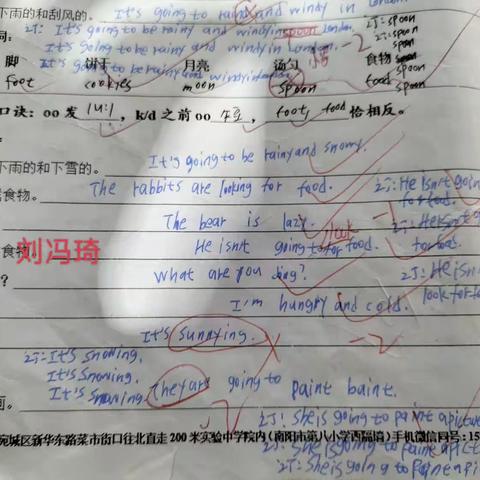 下雨的和刮风的。 It's going to rainy and windy in London.
订: It's going to be rainy and windy in London. 订: spoon
It's going to be rainy and windy in London. -2 spoon
脚 饼干 月亮 汤勺 食物 spoon
foot cookies moon spoon food spoon
口诀: oo 发 /u:/, k/d 之前 oo 短, foot, food 恰相反。
下雨的和下雪的。 It's going to be rainy and snowy.
食物。 The rabbits are looking for food. 订: He isn't going
for food.
The bear is lazy. look -1
食物。 He isn't going to for food. for food.
刘冯琦
? What are you doing? 订: He isn't
I'm hungry and cold. look for fo
It's sunnying. -2
订: It's snowing.
It's snowing.
It's snowing. They are going to paint
画。 订: She is going to paint a picture
宛城区新华东路菜市街口往北直走 200 米实验中学院内(南阳市第八小学西隔墙)手机微信同号: 15
订: She is going to paint a pict
订: She is going to paint a pi